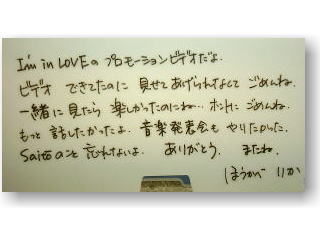 I'm in LOVEの プロモーションビデオだよ.
ビデオ できてたのに 見せてあげられなくて ごめんね.
一緒に見たら 楽しかったのにね… ホントに ごめんね.
もっと 話したかったよ. 音楽発表会も やりたかった.
Saitoのこと 忘れないよ. ありがとう. またね.
ほうかべ りか